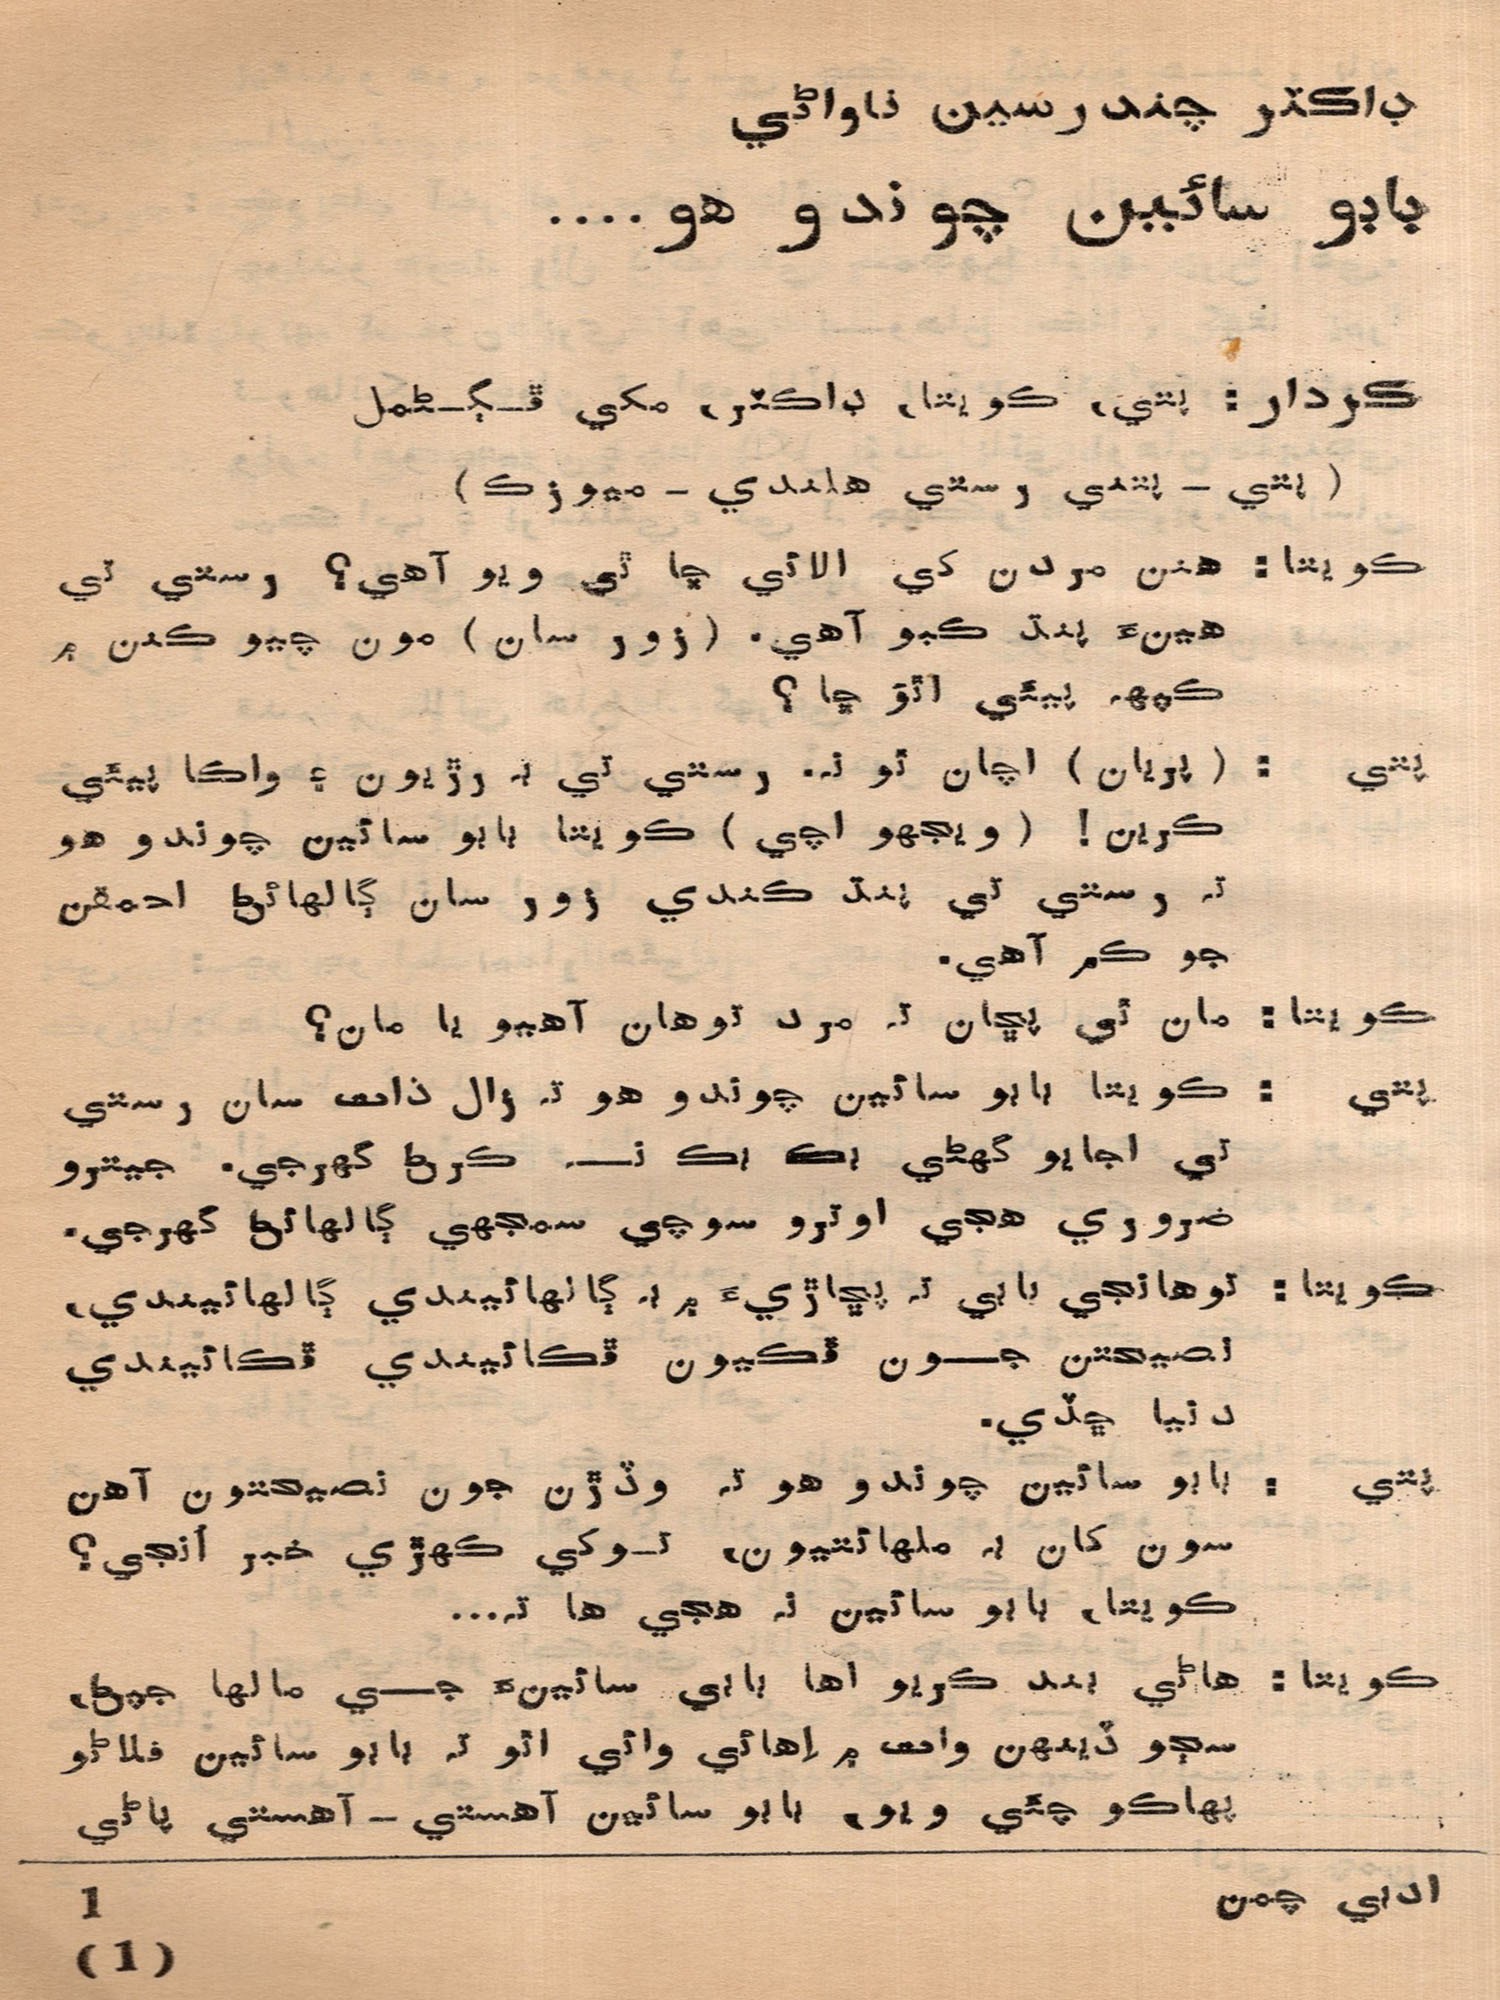 ڊاڪٽر چندرسين ناواڻي
ٻاٻو سائين چوندو هو....
ڪردار: پتي، ڪويتا، ڊاڪٽر، مکي ٿـڳـڻمل
(پتي - پتني رستي هلندي - ميوزڪ)
ڪويتا: هنن مردن کي الائي ڇا ٿي ويو آهي؟ رستي تي
هينءَ پنڌ ڪبو آهي. (زور سان) مون چيو ڪنن ۾
ڪپهہ پيئي اٿوَ ڇا؟
پتي : (پريان) اچان ٿو نہ. رستي تي بہ رڙيون ۽ واڪا پيئي
ڪرين! (ويجهو اچي) ڪويتا ٻاٻو سائين چوندو هو
تہ رستي تي پنڌ ڪندي زور سان ڳالهائڻ احمقن
جو ڪم آهي.
ڪويتا: مان ٿي پڇان تہ مرد توهان آهيو يا مان؟
پتي : ڪويتا ٻاٻو سائين چوندو هو تہ زال ذات سان رستي
تي اجايو گهڻي ٻڪ ٻڪ نــہ ڪرڻ گهرجي. جيترو
ضروري هجي اوترو سوچي سمجهي ڳالهائڻ گهرجي.
ڪويتا: توهانجي ٻاٻي تہ پڇاڙيءَ ۾ بہ ڳالهائيندي ڳالهائيندي،
نصيحتن جــون ڦڪيون ڦڪائيندي ڦڪائيندي
دنيا ڇڏي.
پتي : ٻاٻو سائين چوندو هو تہ وڏڙن جون نصيحتون آهن
سون کان بہ ملهائتيون، تـوکي ڪهڙي خبر اُنجي؟
ڪويتا، ٻاٻو سائين نہ هجي ها تہ...
ڪويتا: هاڻي بند ڪريو اها ٻاٻي سائينءَ جــي مالها جپڻ،
سڄو ڏينهن وات ۾ اِهائي وائي اٿو تہ ٻاٻو سائين فلاڻو
پهاڪو چئي ويو، ٻاٻو سائين آهستي - آهستي پاڻي
ادبي چمن
1
(1)